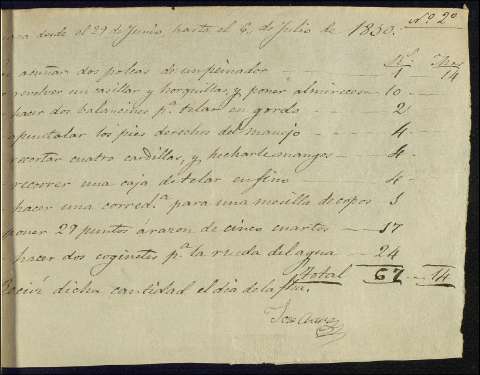 Nº 2º
desde el 29 de Junio, hasta el 6, de Julio de 1850.
Rˢ Mrs
acuñar dos poleas de un peinador 1 14
revolver un casillar y horquillas, y poner almireces 10
hacer dos balancines pª telar en gordo 2
apuntalar los pies derechos del manejo 4
recortar cuatro cardillas, y hecharles mangos 4
recorrer una caja de telar en fino 4
hacer una corredª para una mesilla de copos 1
poner 29 puntos á razon de cinco cuartos 17
hacer dos coginetes pª la rueda del agua 24
Total 67 14
Recivi dicha cantidad el dia de la fha.